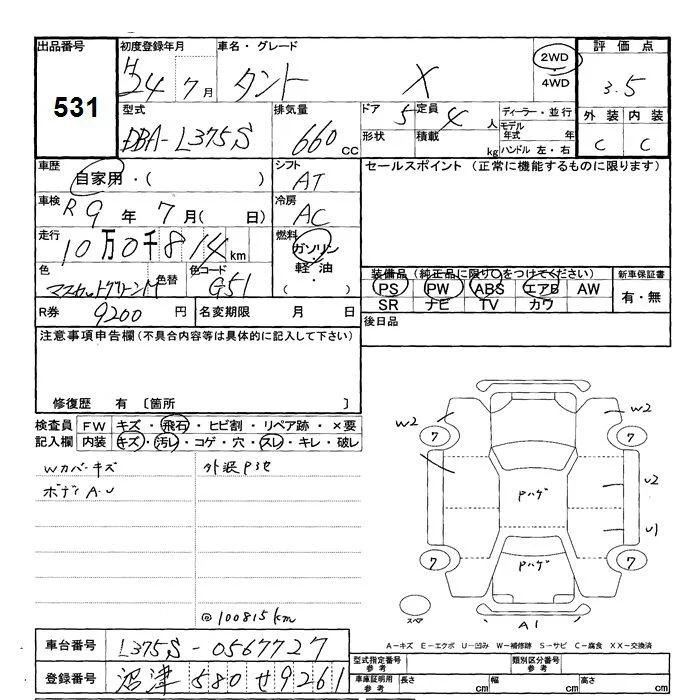 出品番号 初度登録年月 車名・グレード 2WD 評価点
531 H24 7月 タント X 4WD 3.5
型式 排気量 ドア 5 定員 4人 ディーラー・並行 外装 内装
DBA-L375S 660cc 形状 積載 kg モデル年式 年 C C
ハンドル 左・右
車歴 シフト セールスポイント(正常に機能するものに限ります)
自家用・( ) AT
車検 R9年 7月( 日) 冷房 AC
走行 10万0千814km 燃料 ガソリン
軽油
( )
色 マスカットグリーンM 色替 色コード G51
装備品(純正品に限り○をつけてください) 新車保証書
PS PW ABS エアB AW 有・無
SR ナビ TV カワ
R券 9200円 名変期限 月 日 後日品
注意事項申告欄(不具合内容等は具体的に記入して下さい)
修復歴 有 〔箇所 〕
検査員 FW キズ・飛石・ヒビ割・リペア跡・×要
記入欄 内装 キズ・汚レ・コゲ・穴・スレ・キレ・破レ
Wカバーキズ 外装Pヨセ
ボディA・U
@100815km
W2 W2
7 7
Pハゲ U2
U1
7 Pハゲ 7
スペア A1
A-キズ E-エクボ U-凹み W-補修跡 S-サビ C-腐食 XX-交換済
車台番号 L375S-0567727 型式指定番号 参考 類別区分番号 参考
登録番号 沼津 580 せ 9261 車庫証明用 参考 長さ cm 幅 cm 高さ cm